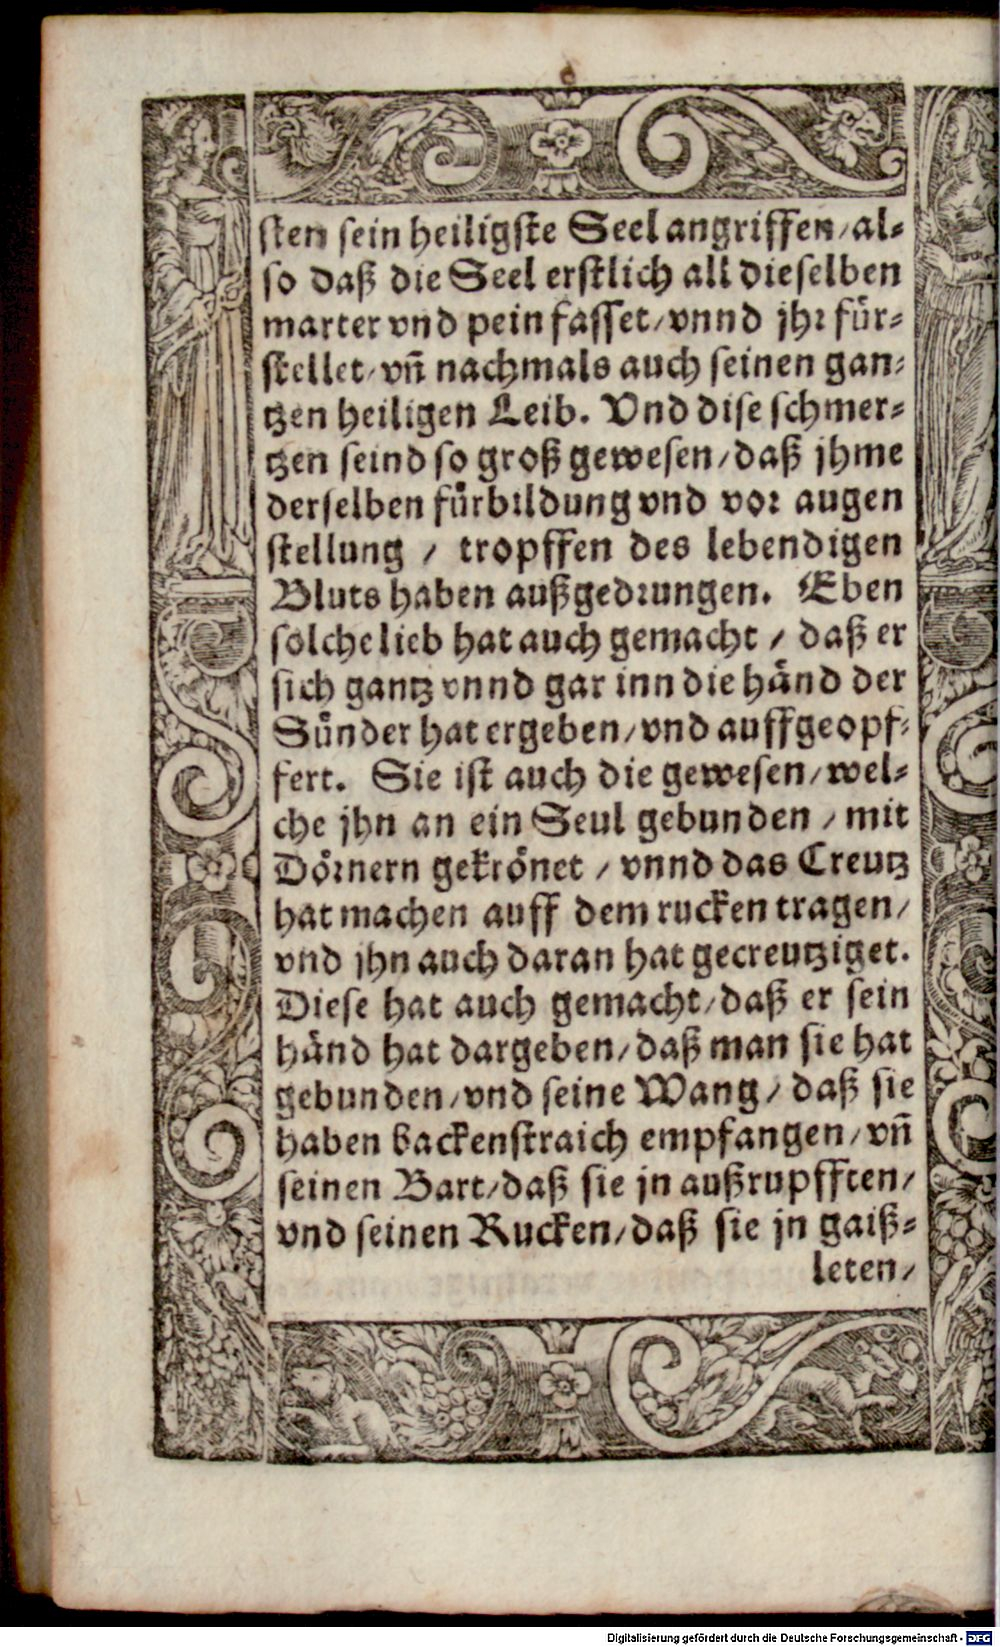 sten sein heiligste Seel angriffen/al-
so daß die Seel erstlich all dieselben
marter vnd pein fasset/vnnd jhr für-
stellet/vñ nachmals auch seinen gan-
tzen heiligen Leib. Vnd dise schmer-
tzen seind so groß gewesen/daß jhme
derselben fürbildung vnd vor augen
stellung / tropffen des lebendigen
Bluts haben außgedrungen. Eben
solche lieb hat auch gemacht / daß er
sich gantz vnnd gar inn die händ der
Sünder hat ergeben/vnd auffgeopf-
fert. Sie ist auch die gewesen/wel-
che jhn an ein Seul gebunden / mit
Dörnern gekrönet / vnnd das Creutz
hat machen auff dem rucken tragen/
vnd jhn auch daran hat gecreutziget.
Diese hat auch gemacht/daß er sein
händ hat dargeben/daß man sie hat
gebunden/vnd seine Wang/ daß sie
haben backenstraich empfangen/vñ
seinen Bart/daß sie jn außrupfften/
vnd seinen Rucken/daß sie jn gaiß-
leten/
Digitalisierung gefördert durch die Deutsche Forschungsgemeinschaft - DFG